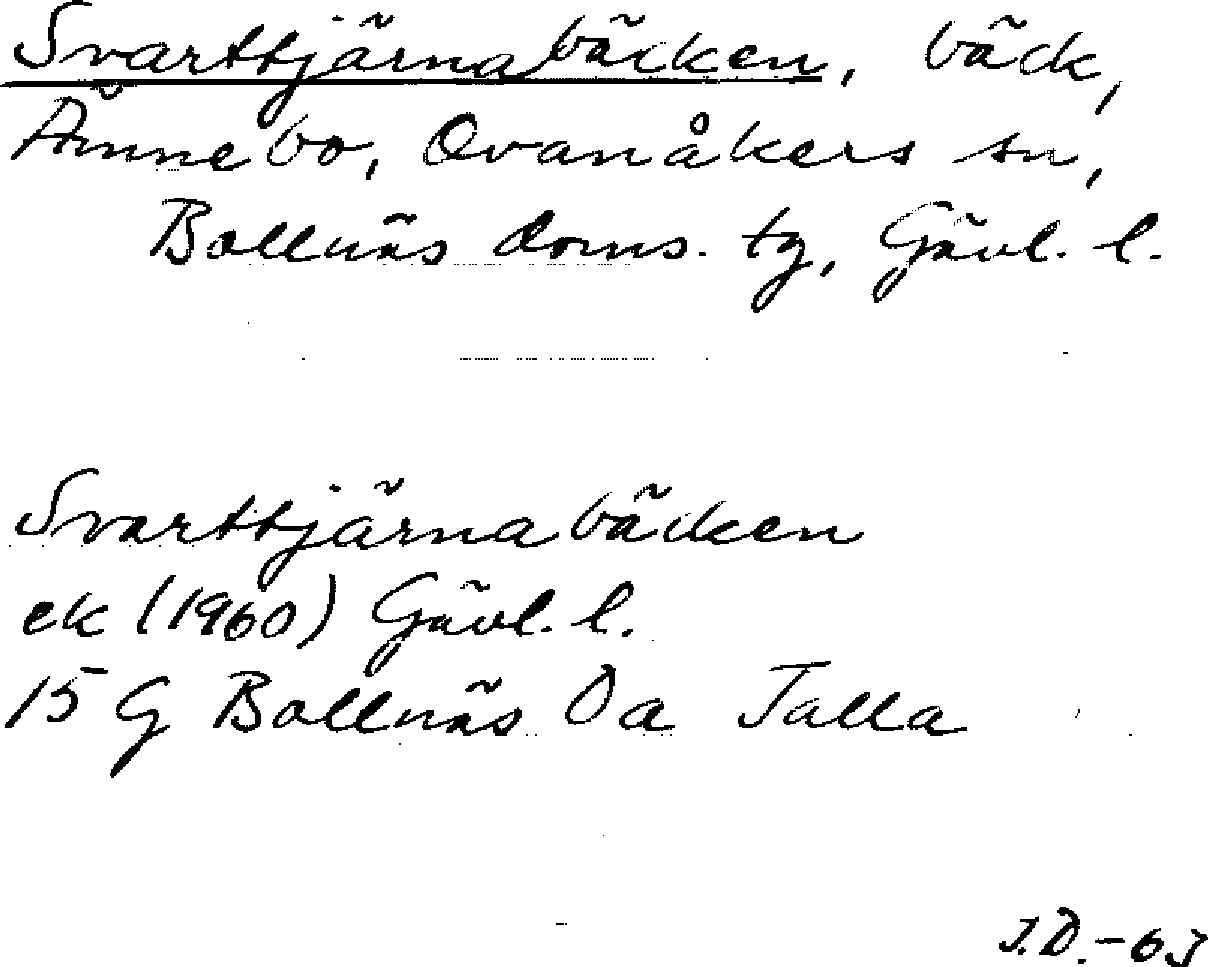 Svarttjärnabäcken, bäck,
Ämnebo, Ovanåkers sn,
Bollnäs doms. tg, Gävl. l.
Svarttjärnabäcken
ek (1960) Gävl. l.
15 G Bollnäs 0a Talla
J.D.-63